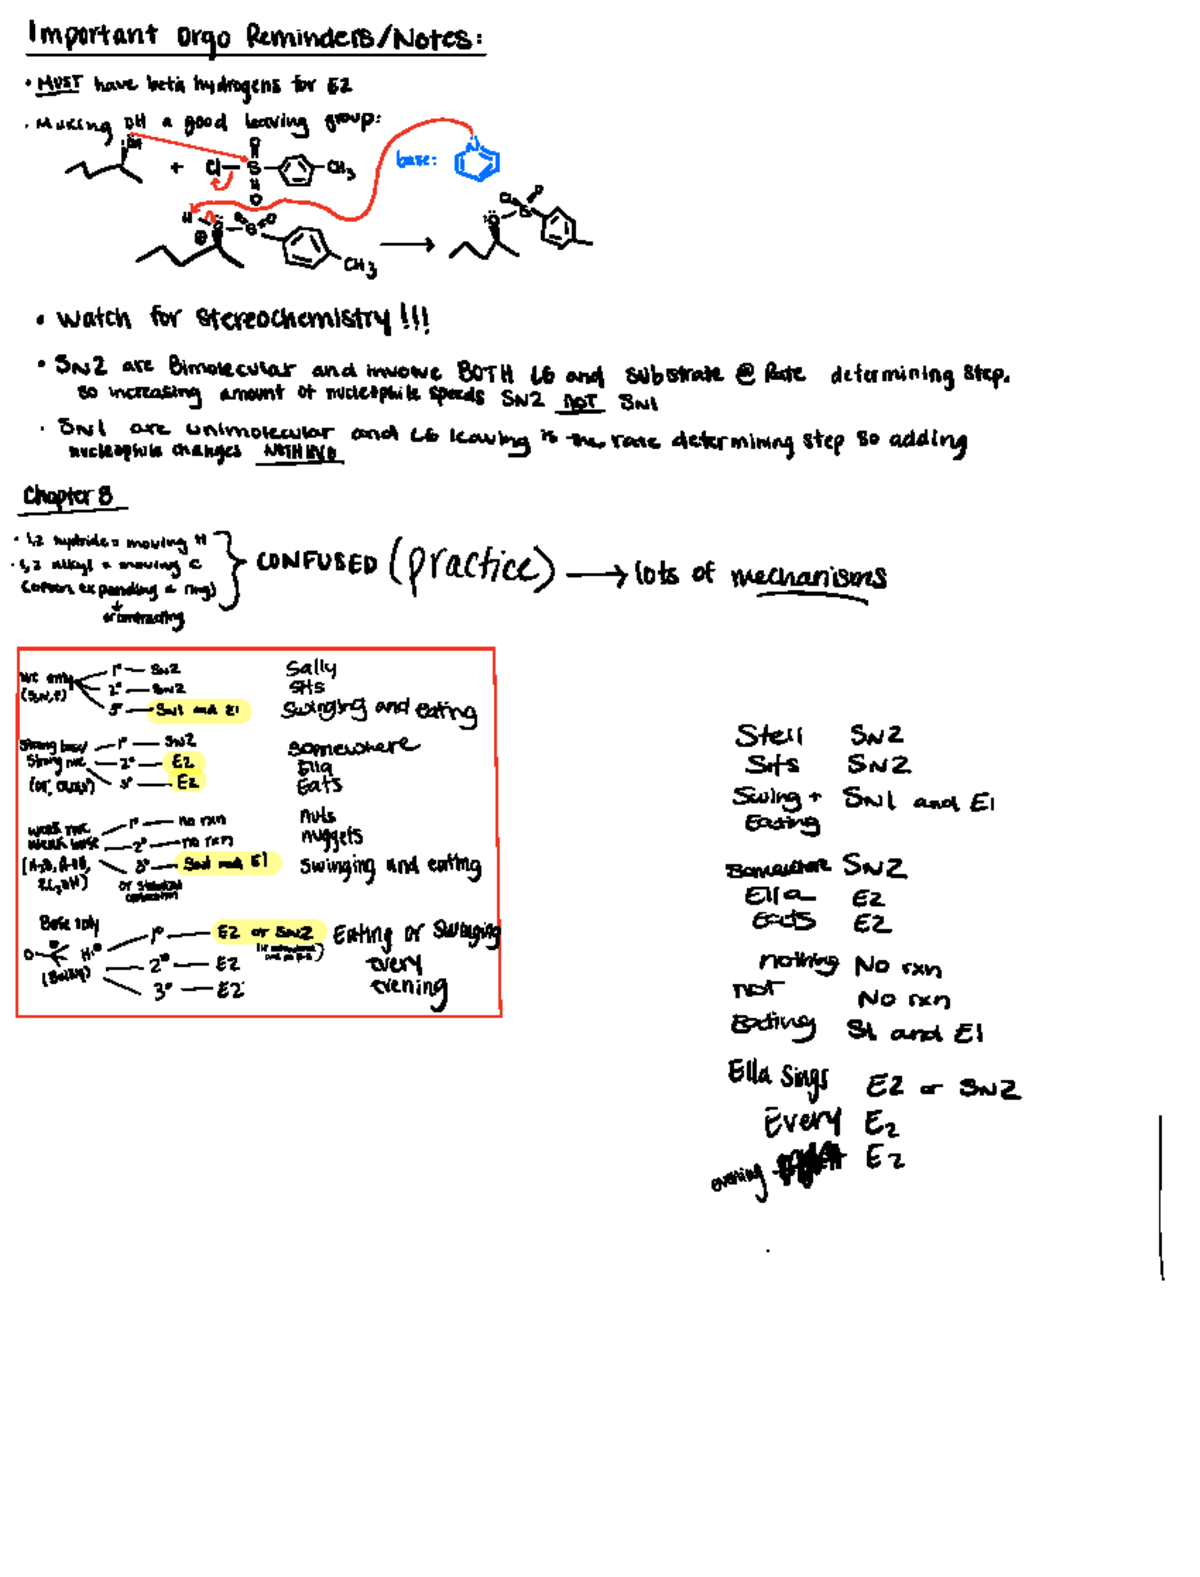 Important Orgo Reminders/Notes:
• MUST have beta hydrogens for E2
• Making OH a good leaving group:
OH
+ Cl-S-CH3
O
O
base: N
H
O-S
O O
CH3
O
Cl O
• Watch for stereochemistry!!!
• SN2 are Bimolecular and involve BOTH LG and substrate @ Rate determining step.
so increasing amount of nucleophile speeds SN2 NOT SN1
• SN1 are unimolecular and LG leaving is the rate determining step so adding
nucleophile changes NOTHING
Chapter 8
• 1,2 hydride = moving H
• 1,2 alkyl = moving C
(often expanding a ring)
or contracting
CONFUSED (practice) → lots of mechanisms
nuc only 1° — SN2 Sally
2° — SN2 Sits
3° — SN1 and E1 Swinging and eating
Strong base/ 1° — SN2 Somewhere
Strong nuc 2° — E2 Ella
3° — E2 Eats
weak nuc 1° — no rxn nuts
weak base 2° — no rxn nuggets
3° — SN1 and E1 swinging and eating
Base only
1° — E2 or SN2 Eating or Swinging
(Bulky) 2° — E2 every
3° — E2 evening
Stell SN2
Sits SN2
Swing + SN1 and E1
Eating
Somewhere SN2
Ella E2
Eats E2
nothing No rxn
not No rxn
Eating S1 and E1
Ella Sings E2 or SN2
Every E2
evening E2